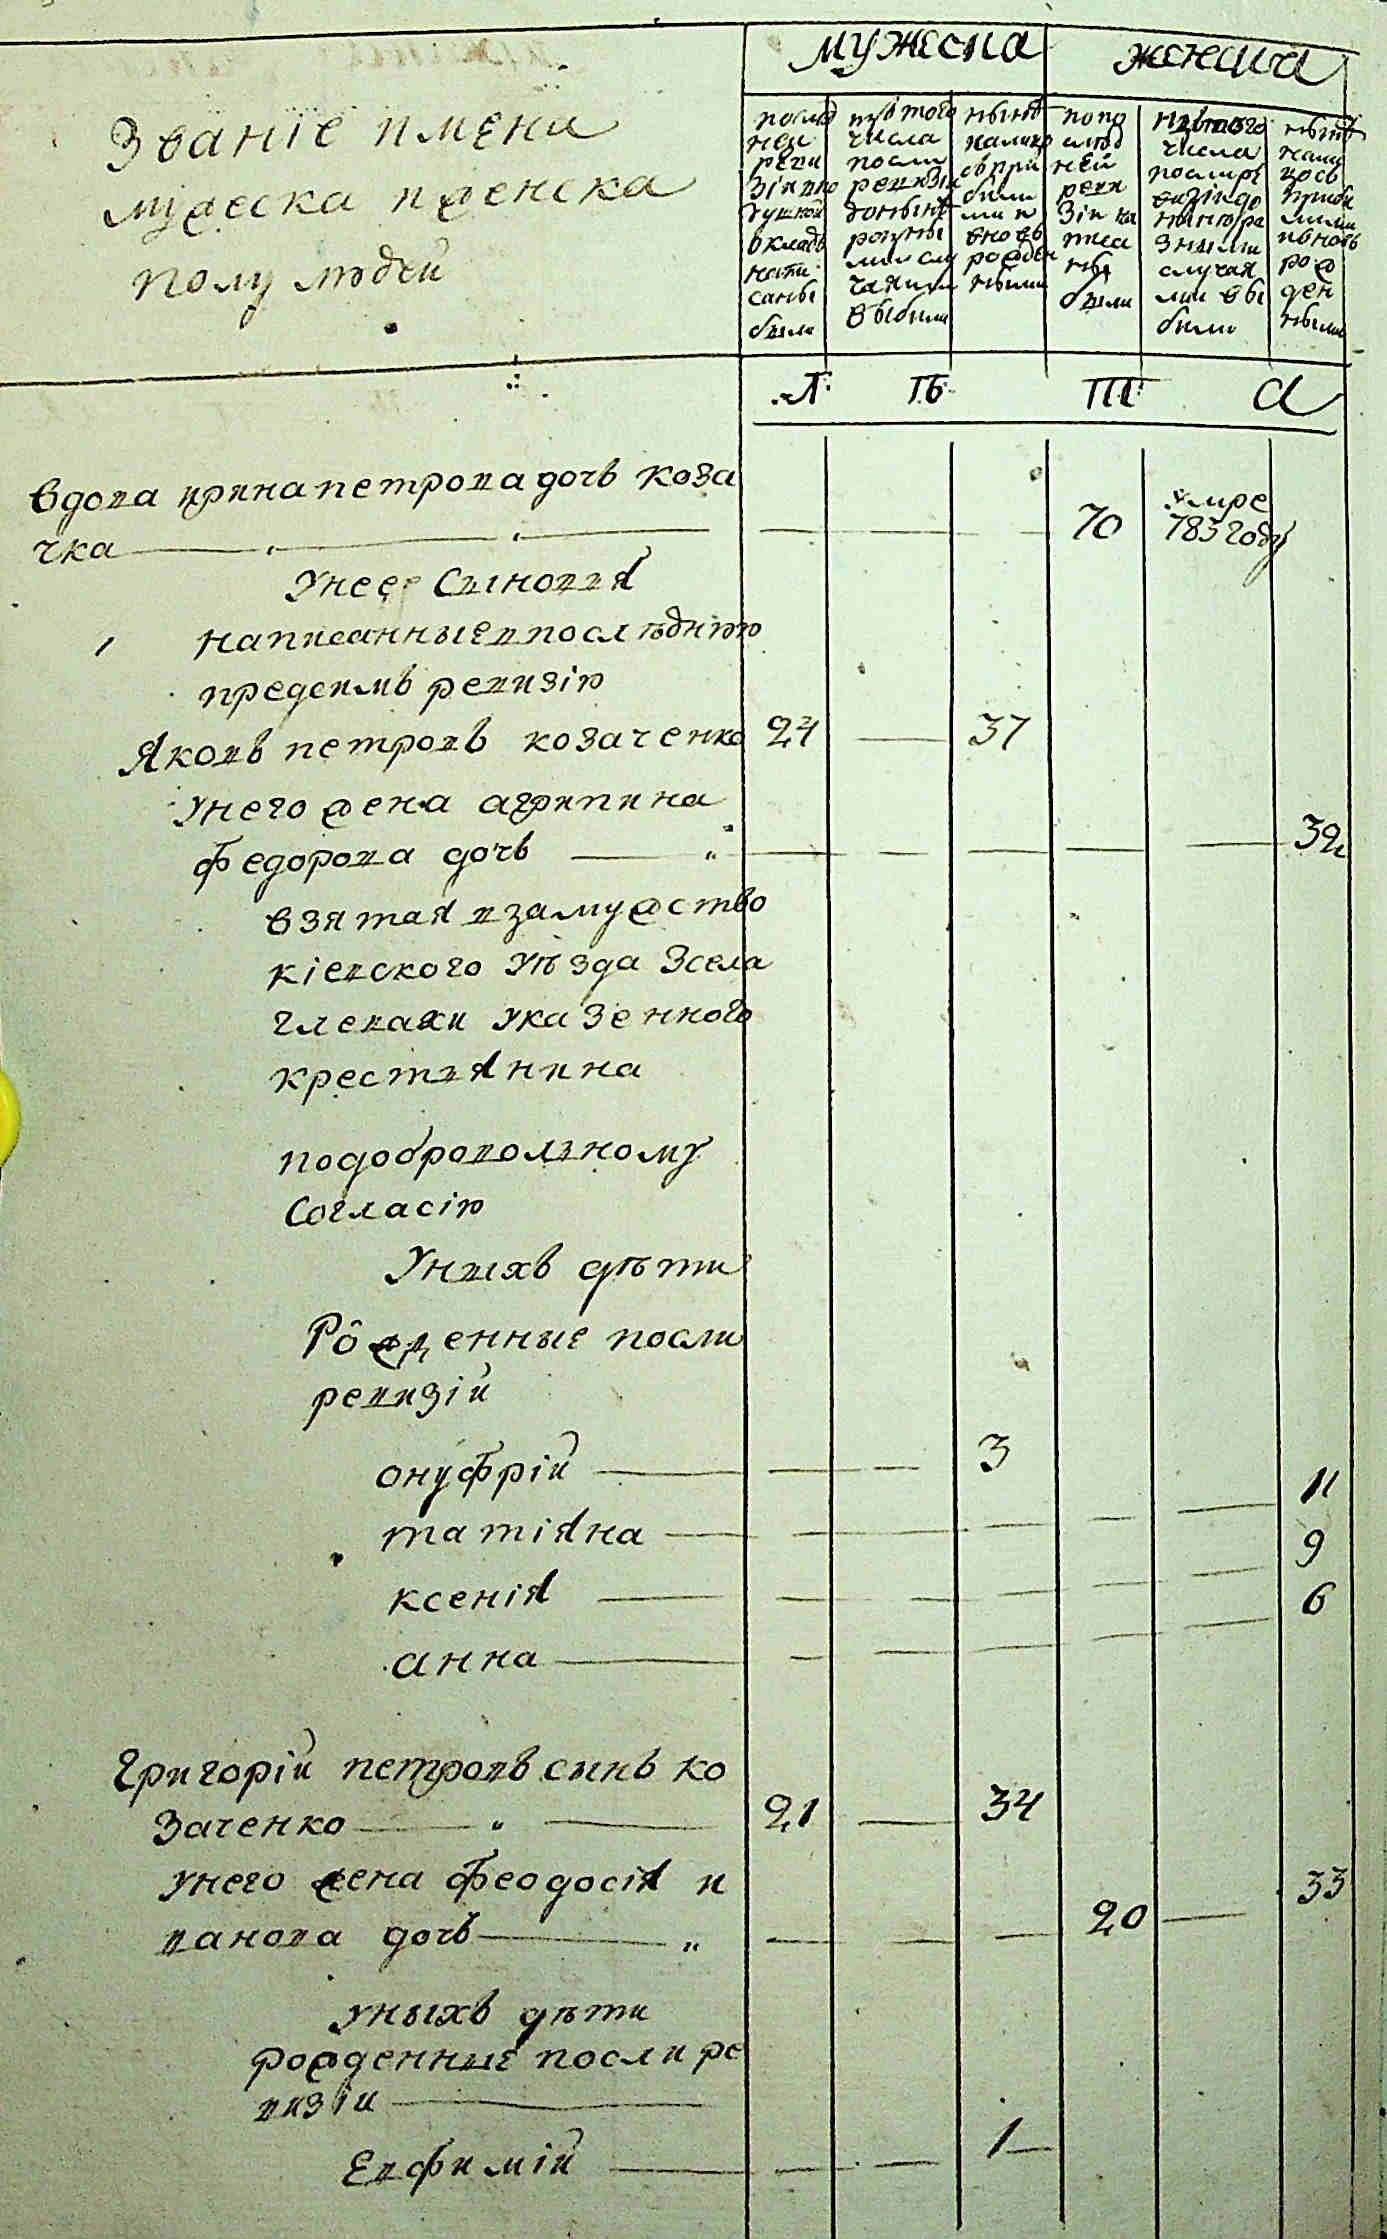 мужеска женска
Званіе имена
мужеска иженска
полу людей
послѣд
ней
реви
зіи по
душной
окладъ
напи
саны
были
изтого
числа
посли
ревизіи
донынѣ
розны
ми слу
чаями
выбыли
нынѣ
налицо
съ при
были
ми и
вновъ
рожден
ными
по по
слѣд
ней
реви
зіи на
писа
ны
были
изтого
числа
послире
визіи до
нынѣ ра
зными
случая
ми вы
были
нынѣ
нали
цось
прибы
лыми
ивновъ
рож
ден
ными
Л: Лѣ: Лѣ а
вдова ирина петрова дочь коза
чка 70 умре
783 году
Унее Сыновья
написанныевпослѣднюю
предсимъ ревизію
Яковъ петровъ козаченко 24 37
Унего жена агрипина
федорова дочь 32
взятая взамужство
кіевского уѣзда Зсела
глевахи указенного
крестьянина
подобровольному
Согласію
Уныхъ дѣти
Рожденные посли
ревизіи
онуфрій 3
татіяна 11
ксенія 9
анна 6
Григорій петровъ сынъ ко
заченко 21 34
унего жена феодосія и
ванова дочь 20 33
уныхъ дѣти
рожденные посли ре
визіи
Евфимій 1